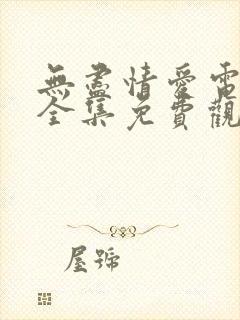 無盡情愛電
全集免費觀
屋號